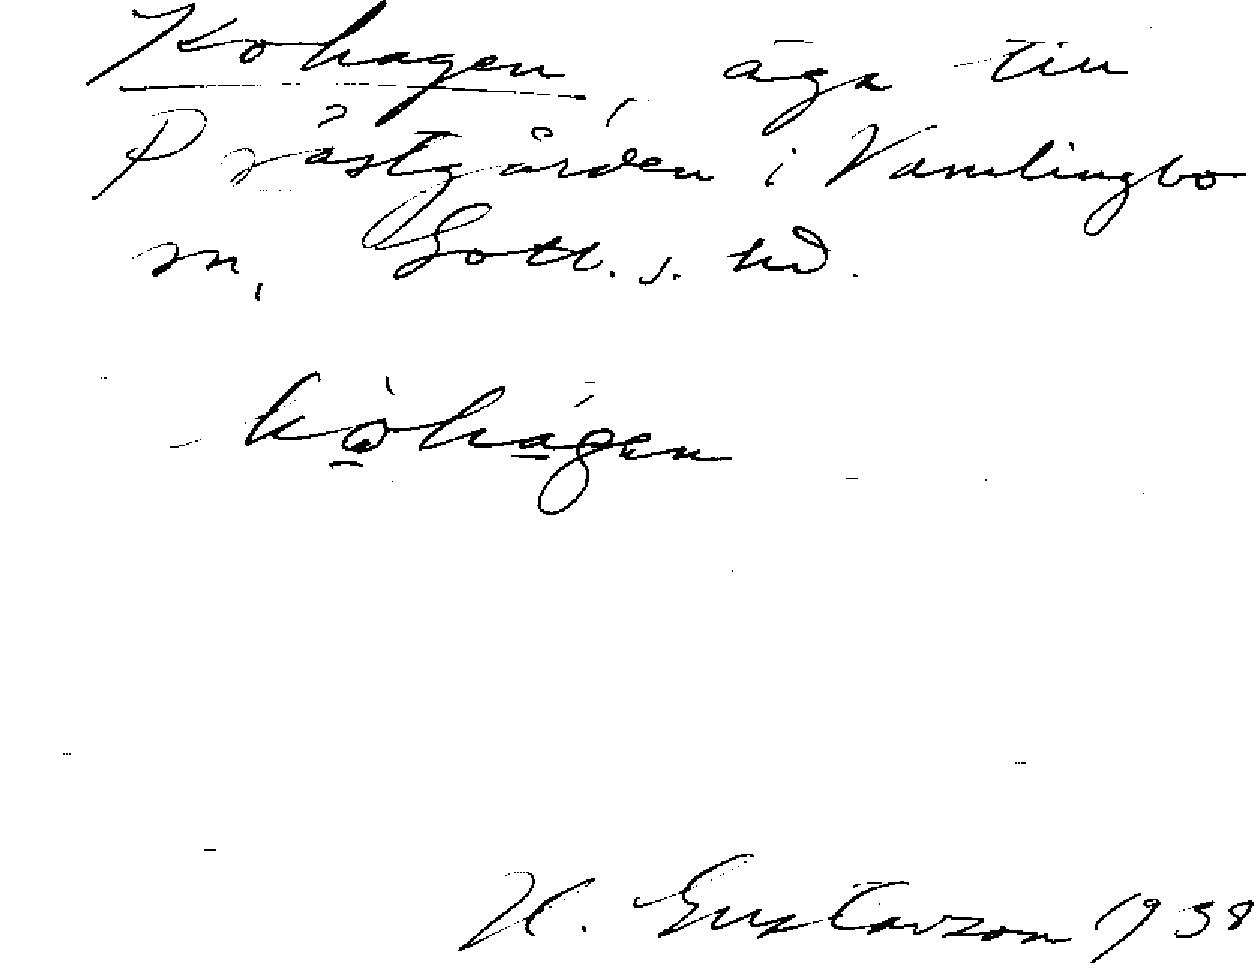 Kohagen, äga till
Prästgården i Vamlingbo
sn, Gotl. s. hd.
kòhágen
H. Gustavson 1938